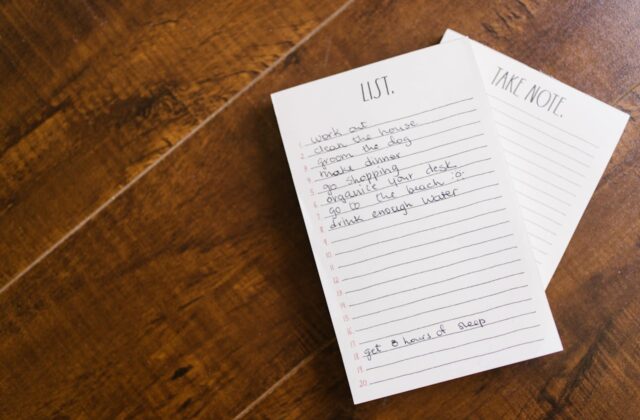 LIST.
TAKE NOTE.
1. work out
2. clean the house
3. groom the dog
4. make dinner
5. go shopping
6. organize your desk
7. go to the beach :)
8. drink enough water
9.
10.
11.
12.
13.
14.
15.
16.
17.
18. get 8 hours of sleep
19.
20.